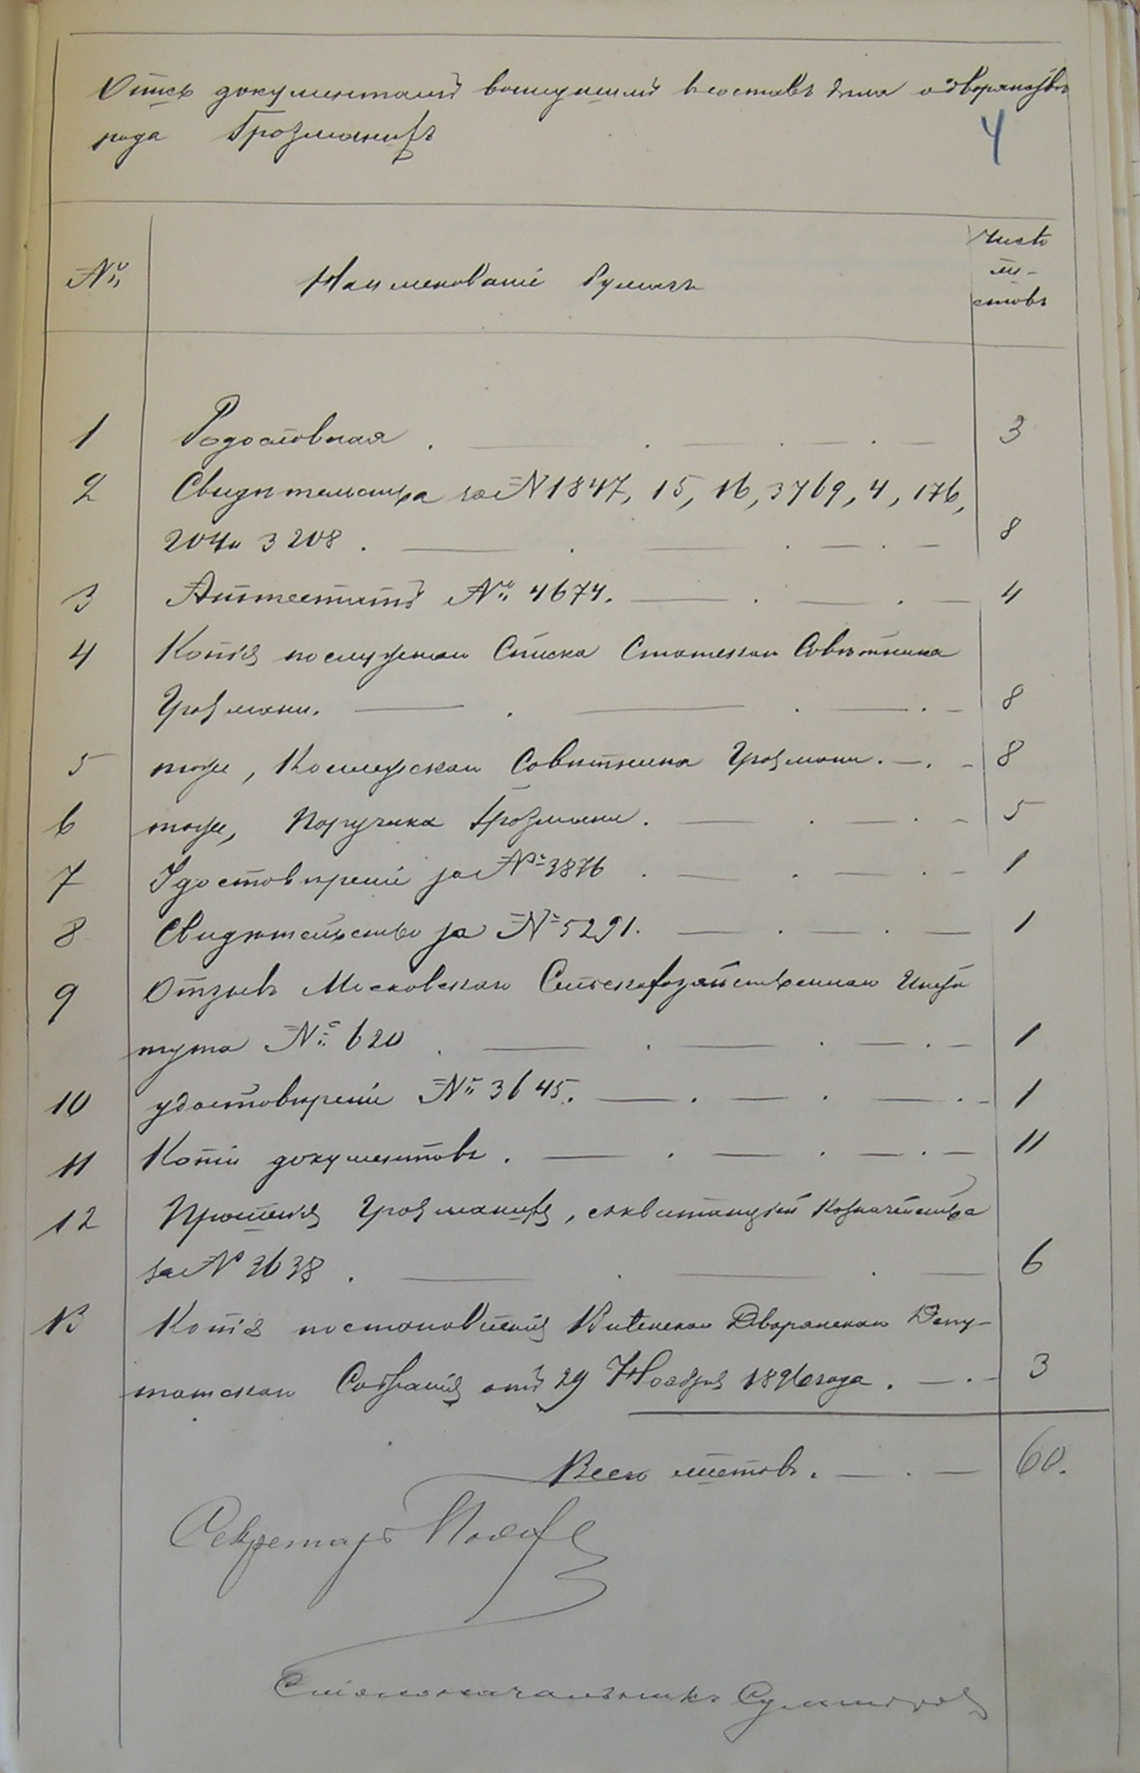 Опись документамъ вошедшимъ въ составъ дѣла о дворянствѣ
рода Грозмани
4
№№
Наименованіе бумагъ
Число
ли-
стовъ
1 Родословная . — . — . — . — 3
2 Свидѣтельства за № 1847, 15, 16, 3769, 4, 176,
204 и 3208 . — . — . — . — 8
3 Аттестатъ № 4674. — . — . — 4
4 Копія послужнаго Списка Статскаго Совѣтника
Грозмани. — . — . — . — 8
5 тоже, Коллежскаго Совѣтника Грозмани. — . — 8
6 тоже, Поручика Грозмани. — . — . — 5
7 Удостовѣреніе за № 3876 . — . — . — 1
8 Свидѣтельство за № 5291. — . — . — 1
9 Отзывъ Московскаго Сельскохозяйственнаго Инсти
тута № 620 . — . — . — . — 1
10 удостовѣреніе № 3645. — . — . — . — 1
11 Копіи документовъ . — . — . — . — 11
12 Прошенія Грозмани, съ квитанціей Казначейства
за № 3638 . — . — . — 6
13 Копія постановленія Виленскаго Дворянскаго Депу-
татскаго Собранія отъ 29 Ноября 1896 года . — . — 3
Всего листовъ . — . — 60.
Секретарь
Столоначальникъ